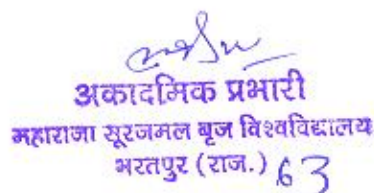 अकादमिक प्रभारी
महाराजा सूरजमल बृज विश्वविद्यालय
भरतपुर (राज.) 63